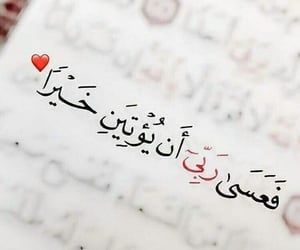 فَعَسَىٰ رَبِّيٓ أَن يُؤْتِيَنِ خَيْرًا